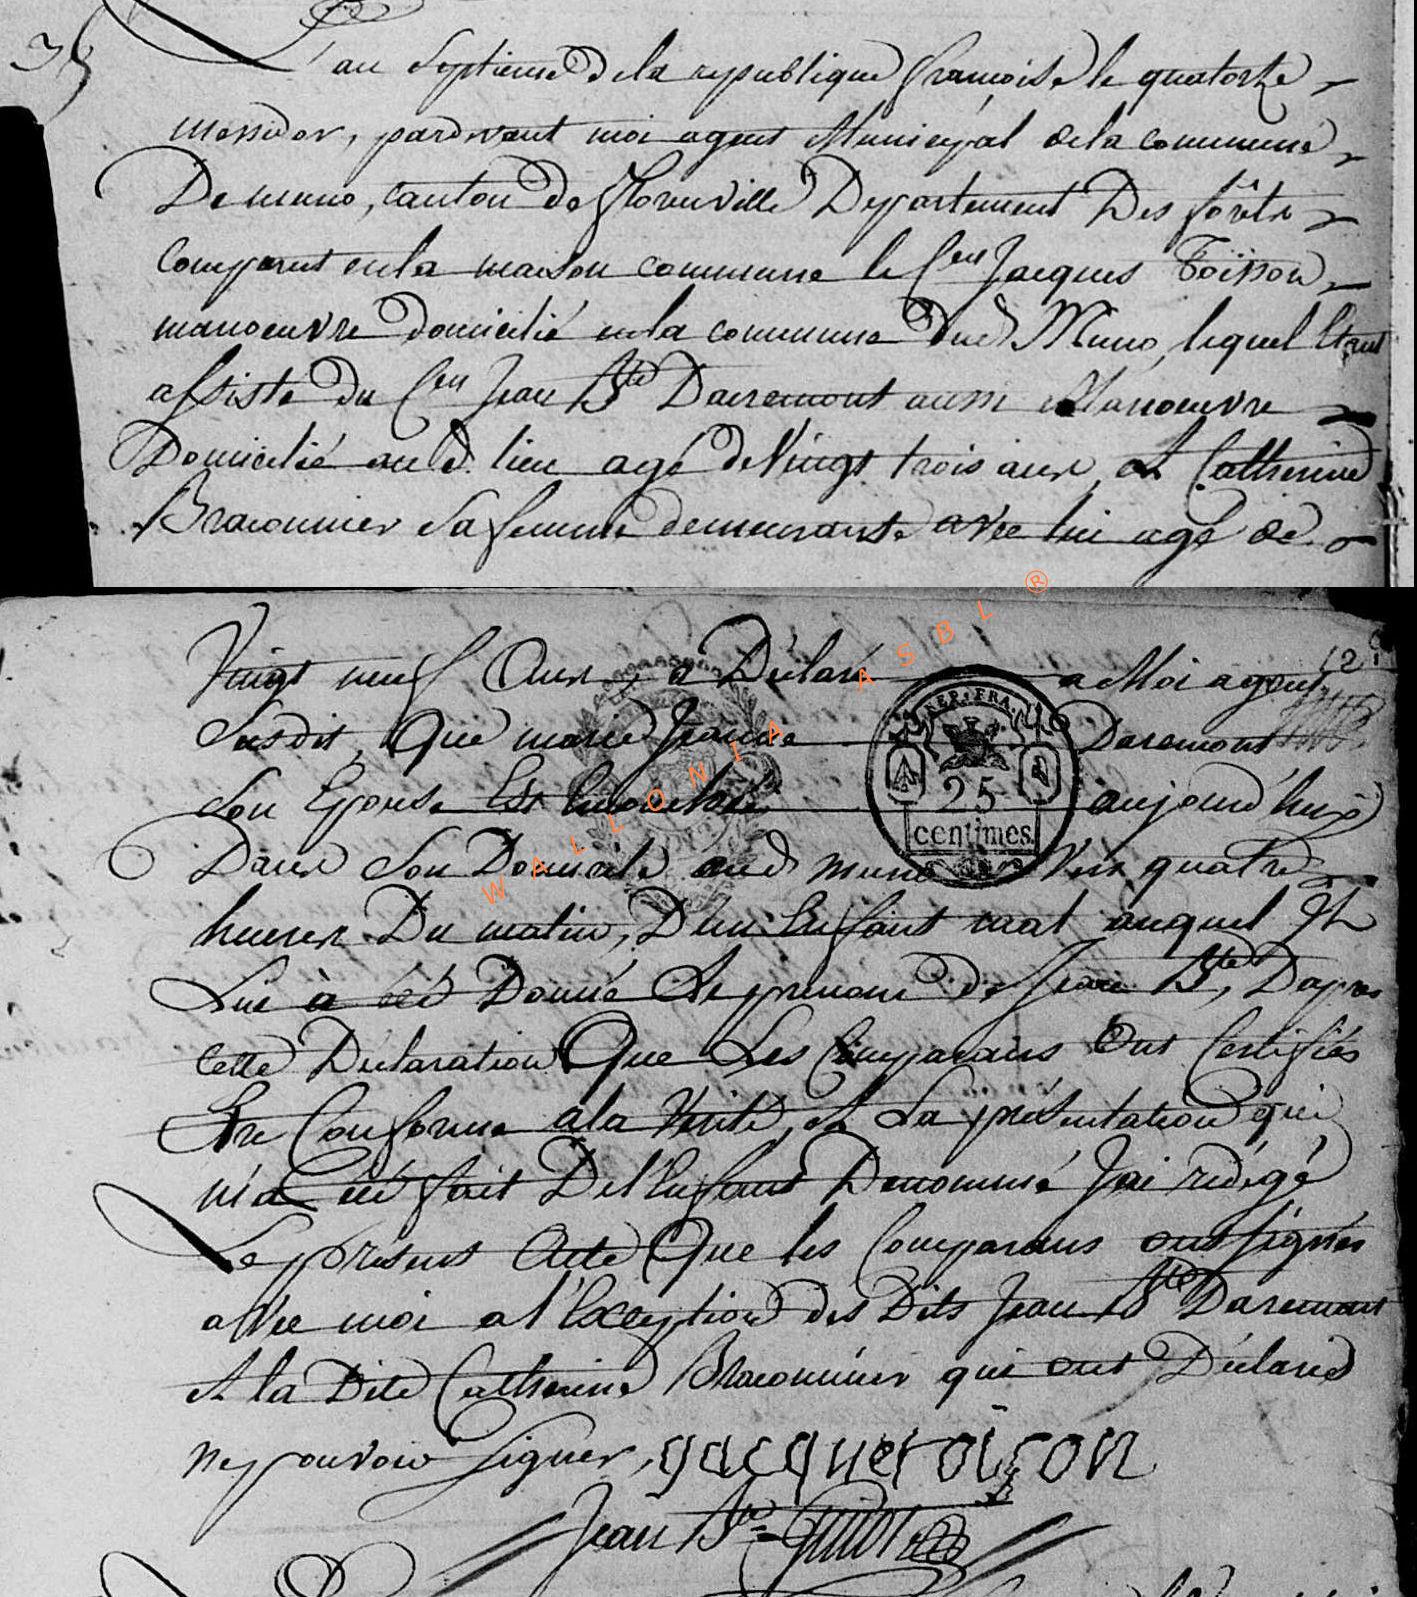 35
L'an Septieme de la republique françoise le quatorze
messidor, pardevant moi agent Municipal de la commune
De muno, canton de florenville Departement Des forêts
Comparut en la maison commune le Cen Jacques Toisson
manoeuvre domicilié en la commune dud Muno, lequel Etant
assisté du Cen Jean Bte Daremont aussi Manoeuvre
Domicilié aud. lieu agé de Vingt trois ans, et Catherine
Braconnier Sa femme demeurante avec lui agé de
Vingt neuf Ans, a Déclaré a Moi agent
Susdit, Que marie Jeanne Daremont
Son Epouse Est accouchée aujourd'huy
Dans Son Domicile aud muno Vers quatre
heures Du matin, D'un Enfant mal auquel Il
Lui à été Donné Le prenom de Jean Bte, Dapres
cette Déclaration Que Les Comparans Ont Certifiés
Etre Conforme a la Verité, et La présentation qui
m'a été fait De l'Enfant Denommé J'ai rédigé
Le présent Acte Que les Comparans ont signés
avec moi a l'Exception des Dits Jean Bte Daremont
et la Dite Catherine Braconnier qui ont Déclaré
ne pouvoir signer,
gacque toison
Jean Bte
REP. FRA.
25
centimes
WALLONIA ASBL ®